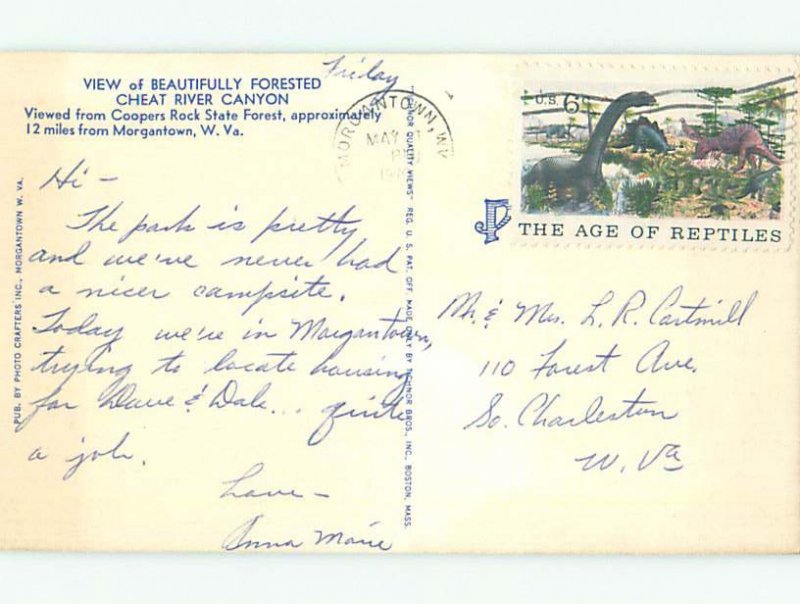 Friday
VIEW of BEAUTIFULLY FORESTED
CHEAT RIVER CANYON
Viewed from Coopers Rock State Forest, approximately
12 miles from Morgantown, W. Va.
MORGANTOWN, WV
MAY
PM
U.S. 6¢
THE AGE OF REPTILES
Hi -
The park is pretty
and we've never had
a nicer campsite.
Today we're in Morgantown,
trying to locate housing
for Dave & Dale... quite
a job.
Love -
Anna Marie
Mr. & Mrs. L. R. Cartmill
110 Forest Ave.
So. Charleston
W. Va
PUB. BY PHOTO CRAFTERS INC., MORGANTOWN W. VA.
QUALITY VIEWS" REG. U. S. PAT. OFF. MADE ONLY BY TICHNOR BROS., INC., BOSTON, MASS.